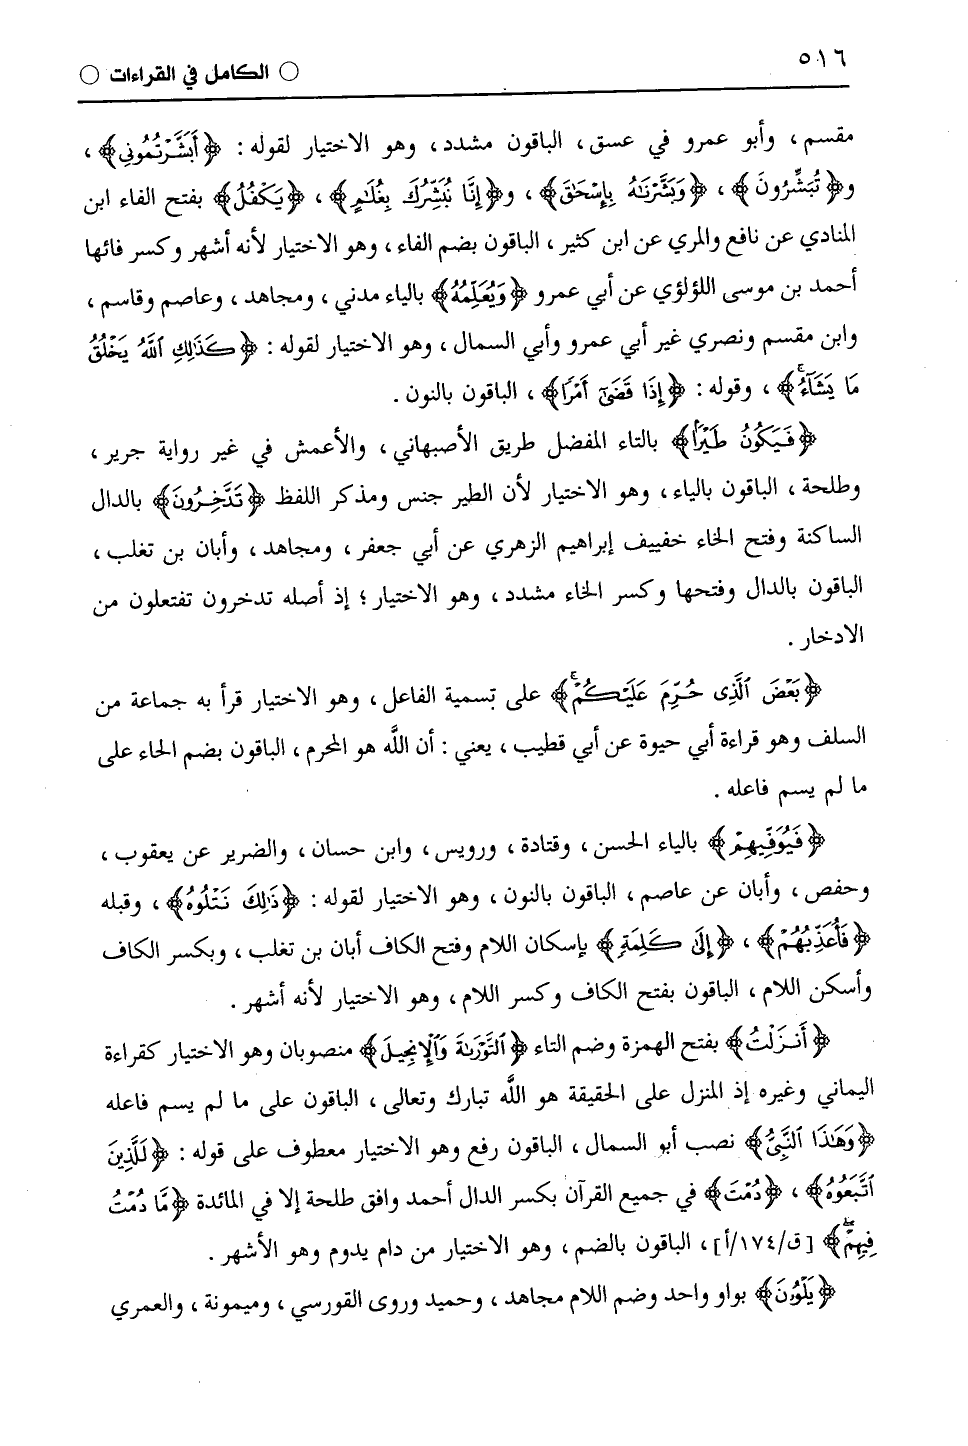 ٥١٦
○ الكامل في القراءات ○
مقسم، وأبو عمرو في عسق، الباقون مشدد، وهو الاختيار لقوله: ﴿أَبَشَّرْتُمُونِي﴾،
و﴿تُبَشِّرُونَ﴾، ﴿وَبَشَّرْنَاهُ بِإِسْحَاقَ﴾، و﴿إِنَّا نُبَشِّرُكَ بِغُلَامٍ﴾، ﴿يَكْفُلُ﴾ بفتح الفاء ابن
المنادي عن نافع والمري عن ابن كثير، الباقون بضم الفاء، وهو الاختيار لأنه أشهر وكسر فائها
أحمد بن موسى اللؤلؤي عن أبي عمرو ﴿وَيُعَلِّمُهُ﴾ بالياء مدني، ومجاهد، وعاصم وقاسم،
وابن مقسم ونصري غير أبي عمرو وأبي السمال، وهو الاختيار لقوله: ﴿كَذَٰلِكِ ٱللَّهُ يَخْلُقُ
مَا يَشَآءُ﴾، وقوله: ﴿إِذَا قَضَىٰٓ أَمْرًا﴾، الباقون بالنون.
﴿فَيَكُونُ طَيْرًا﴾ بالتاء المفضل طريق الأصبهاني، والأعمش في غير رواية جرير،
وطلحة، الباقون بالياء، وهو الاختيار لأن الطير جنس ومذكر اللفظ ﴿تَدَّخِرُونَ﴾ بالدال
الساكنة وفتح الخاء خفييف إبراهيم الزهري عن أبي جعفر، ومجاهد، وأبان بن تغلب،
الباقون بالدال وفتحها وكسر الخاء مشدد، وهو الاختيار؛ إذ أصله تدخرون تفتعلون من
الادخار.
﴿بَعْضَ ٱلَّذِى حُرِّمَ عَلَيْكُمْ﴾ على تسمية الفاعل، وهو الاختيار قرأ به جماعة من
السلف وهو قراءة أبي حيوة عن أبي قطيب، يعني: أن اللَّه هو المحرم، الباقون بضم الحاء على
ما لم يسم فاعله.
﴿فَيُوَفِّيهِمْ﴾ بالياء الحسن، وقتادة، ورويس، وابن حسان، والضرير عن يعقوب،
وحفص، وأبان عن عاصم، الباقون بالنون، وهو الاختيار لقوله: ﴿ذَٰلِكَ نَتْلُوهُ﴾، وقبله
﴿فَأُعَذِّبُهُمْ﴾، ﴿إِلَىٰ كَلِمَةٍ﴾ بإسكان اللام وفتح الكاف أبان بن تغلب، وبكسر الكاف
وأسكن اللام، الباقون بفتح الكاف وكسر اللام، وهو الاختيار لأنه أشهر.
﴿أَنزَلْتُ﴾ بفتح الهمزة وضم التاء ﴿ٱلتَّوْرَىٰةَ وَٱلْإِنجِيلَ﴾ منصوبان وهو الاختيار كقراءة
اليماني وغيره إذ المنزل على الحقيقة هو اللَّه تبارك وتعالى، الباقون على ما لم يسم فاعله
﴿وَهَٰذَا ٱلنَّبِىُّ﴾ نصب أبو السمال، الباقون رفع وهو الاختيار معطوف على قوله: ﴿لَلَّذِينَ
ٱتَّبَعُوهُ﴾، ﴿دُمْتَ﴾ في جميع القرآن بكسر الدال أحمد وافق طلحة إلا في المائدة ﴿مَّا دُمْتُ
فِيهِمْ﴾ [ق/١٧٤/أ]، الباقون بالضم، وهو الاختيار من دام يدوم وهو الأشهر.
﴿يَلْوُنَ﴾ بواو واحد وضم اللام مجاهد، وحميد وروى القورسي، وميمونة، والعمري